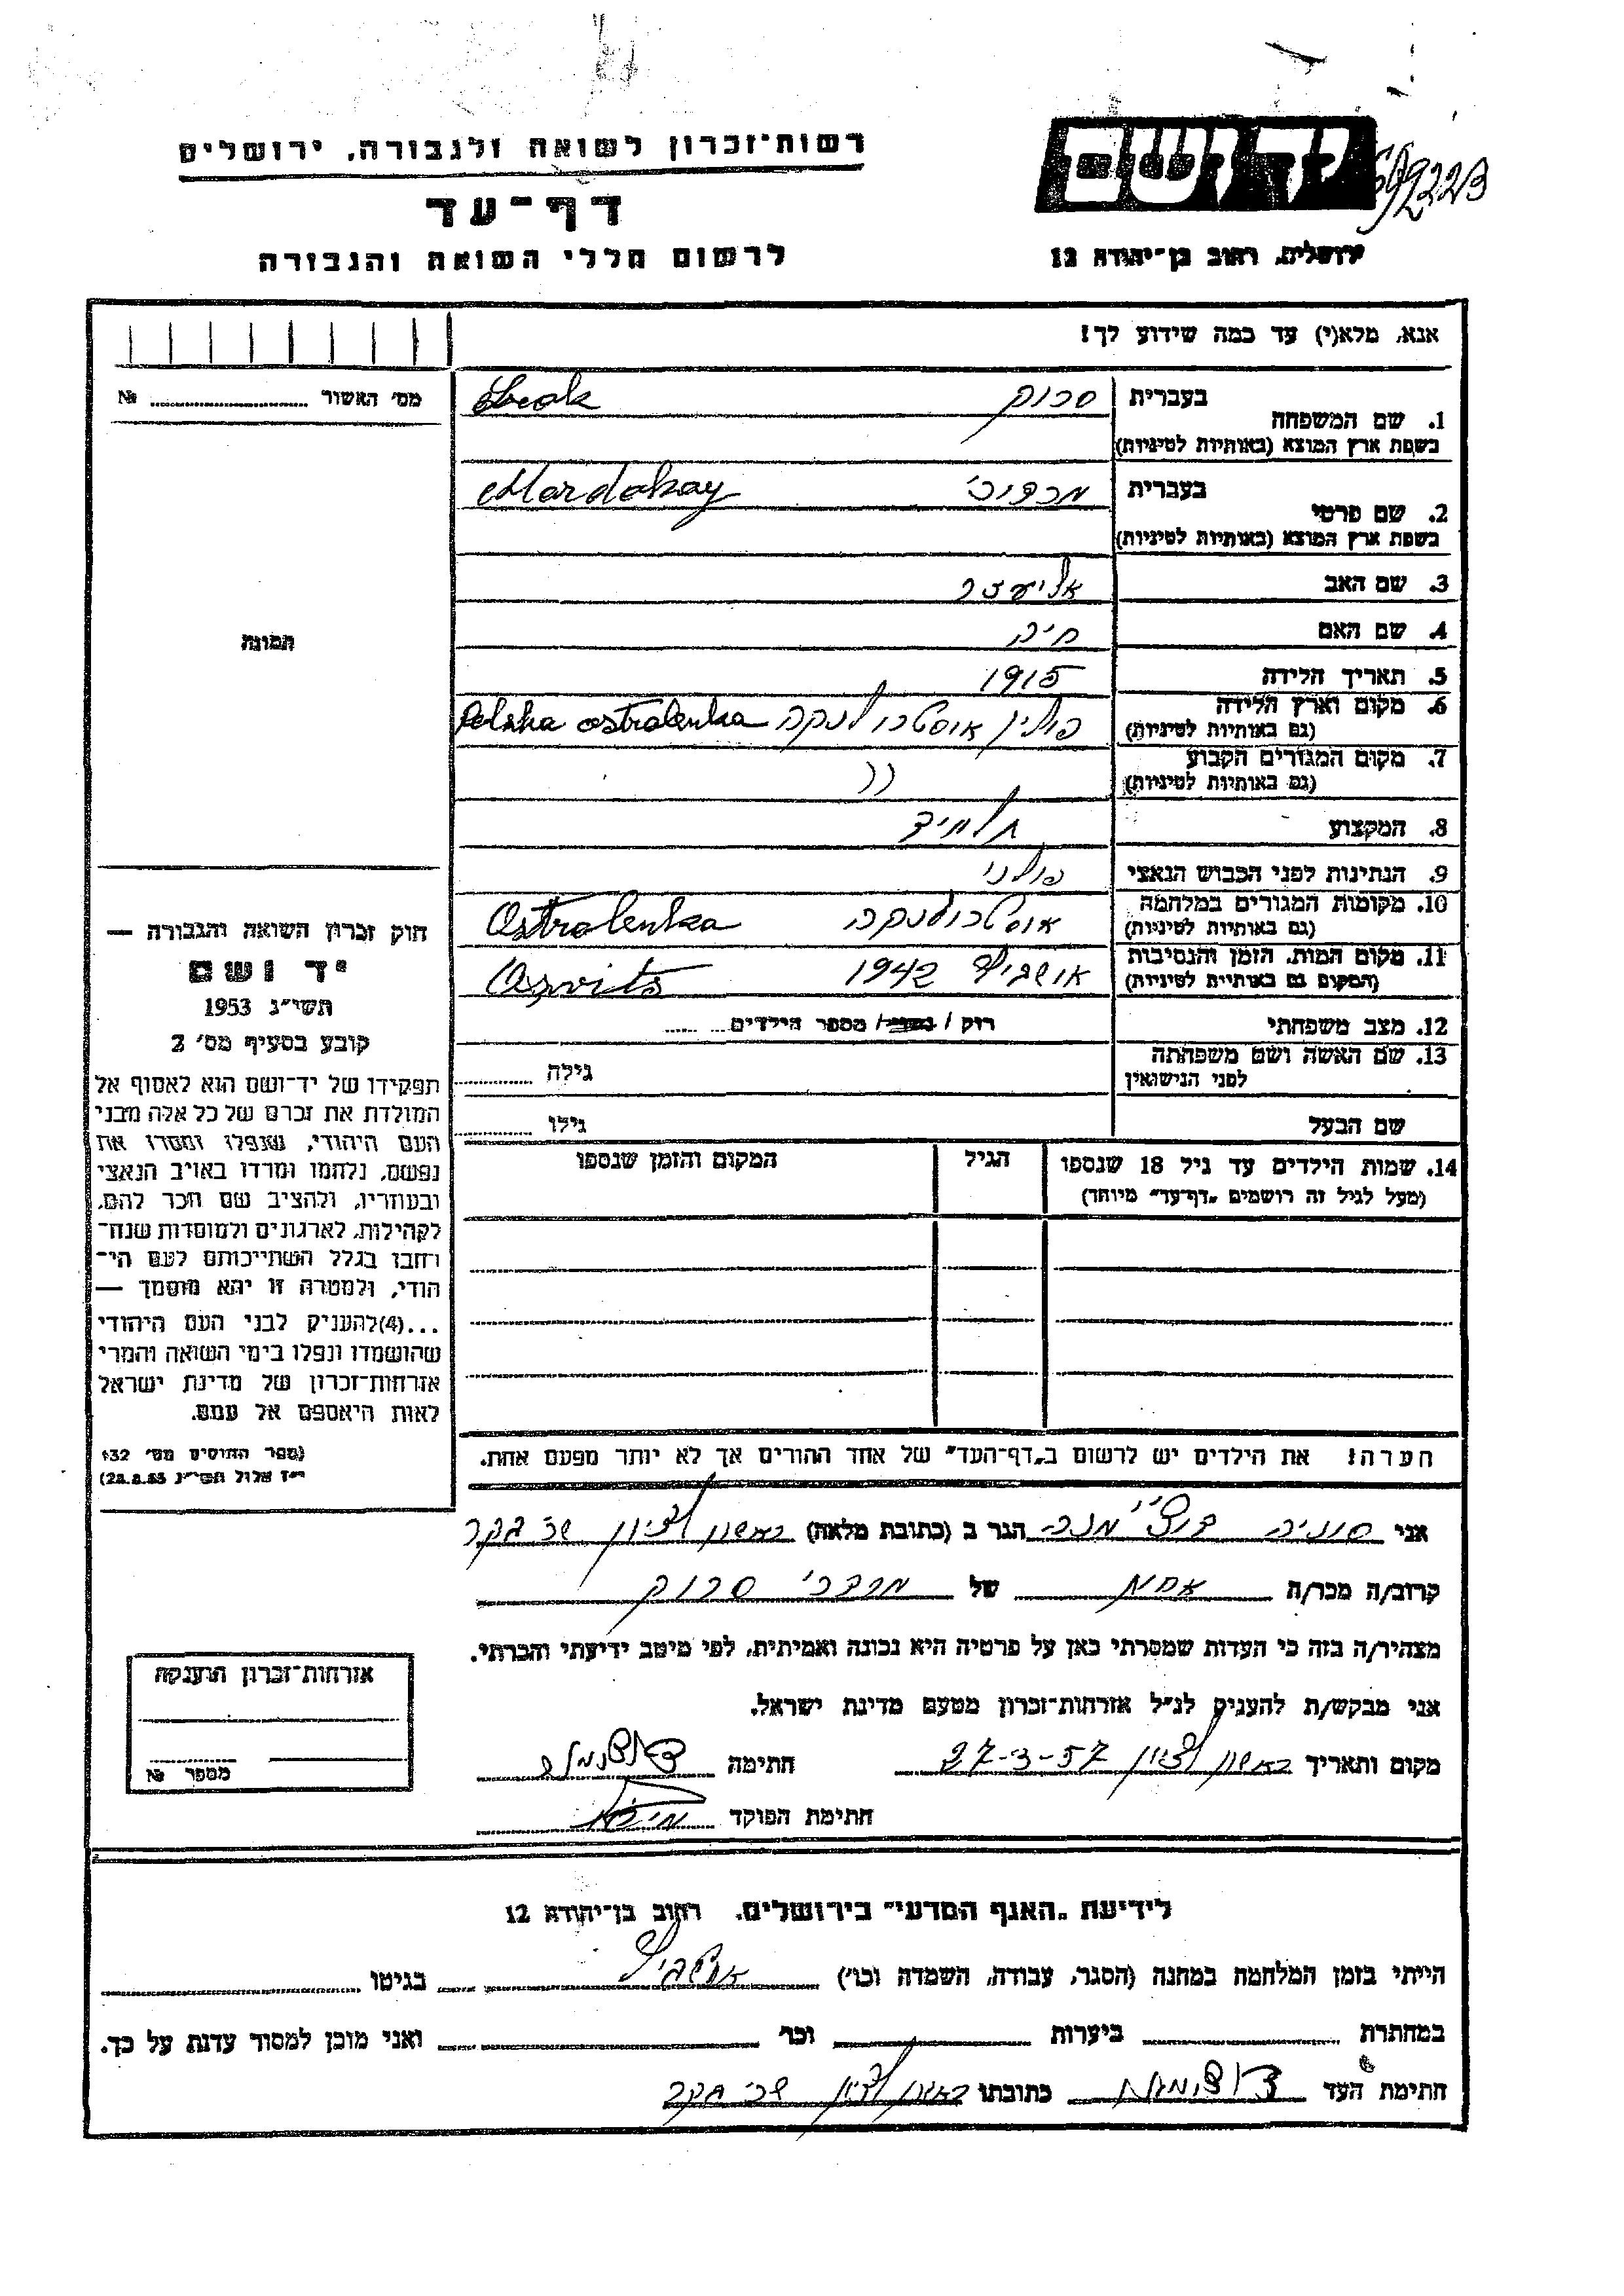 רשות־זכרון לשואה ולגבורה, ירושלים
דף־עד
לרשום חללי השואה והגבורה
יד ושם
ירושלים, רחוב בן־יהודה 12
אנא, מלא(י) עד כמה שידוע לך!
מס׳ האשור № 
תמונה
1. שם המשפחה בעברית
בשפת ארץ המוצא (באותיות לטיניות)
2. שם פרטי בעברית מרדכי Mardokay
בשפת ארץ המוצא (באותיות לטיניות)
3. שם האב אליעזר
4. שם האם חיה
5. תאריך הלידה 1915
6. מקום וארץ הלידה פולין אוסטרולנקה Polska ostralenka
(גם באותיות לטיניות)
7. מקום המגורים הקבוע ))
(גם באותיות לטיניות)
8. המקצוע תלמיד
9. הנתינות לפני הכבוש הנאצי פולני
10. מקומות המגורים במלחמה אוסטרולנקה Ostralenka
(גם באותיות לטיניות)
11. מקום המות, הזמן והנסיבות אושביץ 1942 Oszvits
(המקום גם באותיות לטיניות)
12. מצב משפחתי רווק / נשוי / מספר הילדים
13. שם האשה ושם משפחתה גילה
לפני הנישואין
שם הבעל גילו
14. שמות הילדים עד גיל 18 שנספו הגיל המקום והזמן שנספו
(מעל לגיל זה רושמים „דף־עד” מיוחד)
הערה! את הילדים יש לרשום ב„דף־העד” של אחד ההורים אך לא יותר מפעם אחת.
חוק זכרון השואה והגבורה —
יד ושם
תשי״ג 1953
קובע בסעיף מס׳ 2
תפקידו של יד־ושם הוא לאסוף אל
המולדת את זכרם של כל אלה מבני
העם היהודי, שנפלו ומסרו את
נפשם, נלחמו ומרדו באויב הנאצי
ובעוזריו, ולהציב שם וזכר להם,
לקהילות, לארגונים ולמוסדות שנח־
רחבו בגלל השתייכותם לעם הי־
הודי, ולמטרה זו יהא מוסמך —
...(4)להעניק לבני העם היהודי
שהושמדו ונפלו בימי השואה והמרי
אזרחות־זכרון של מדינת ישראל
לאות היאספם אל עמם.
(ספר החוקים מס׳ 132
י״ז אלול תשי״ג 28.8.53)
אני סוניה הגר ב (כתובת מלאה) ראשון לציון
קרוב/ה מכר/ה אחות של מרדכי
מצהיר/ה בזה כי העדות שמסרתי כאן על פרטיה היא נכונה ואמיתית, לפי מיטב ידיעתי והכרתי.
אני מבקש/ת להעניק לנ״ל אזרחות־זכרון מטעם מדינת ישראל.
מקום ותאריך ראשון לציון 27-3-57 חתימה
חתימת הפוקד
אזרחות־זכרון הוענקה
מספר №
לידיעת „האגף המדעי” בירושלים, רחוב בן־יהודה 12
הייתי בזמן המלחמה במחנה (הסגר, עבודה, השמדה וכו׳) אושביץ בגיטו
במחתרת ביערות וכו׳ ואני מוכן למסור עדות על כך.
חתימת העד כתובתו ראשון לציון